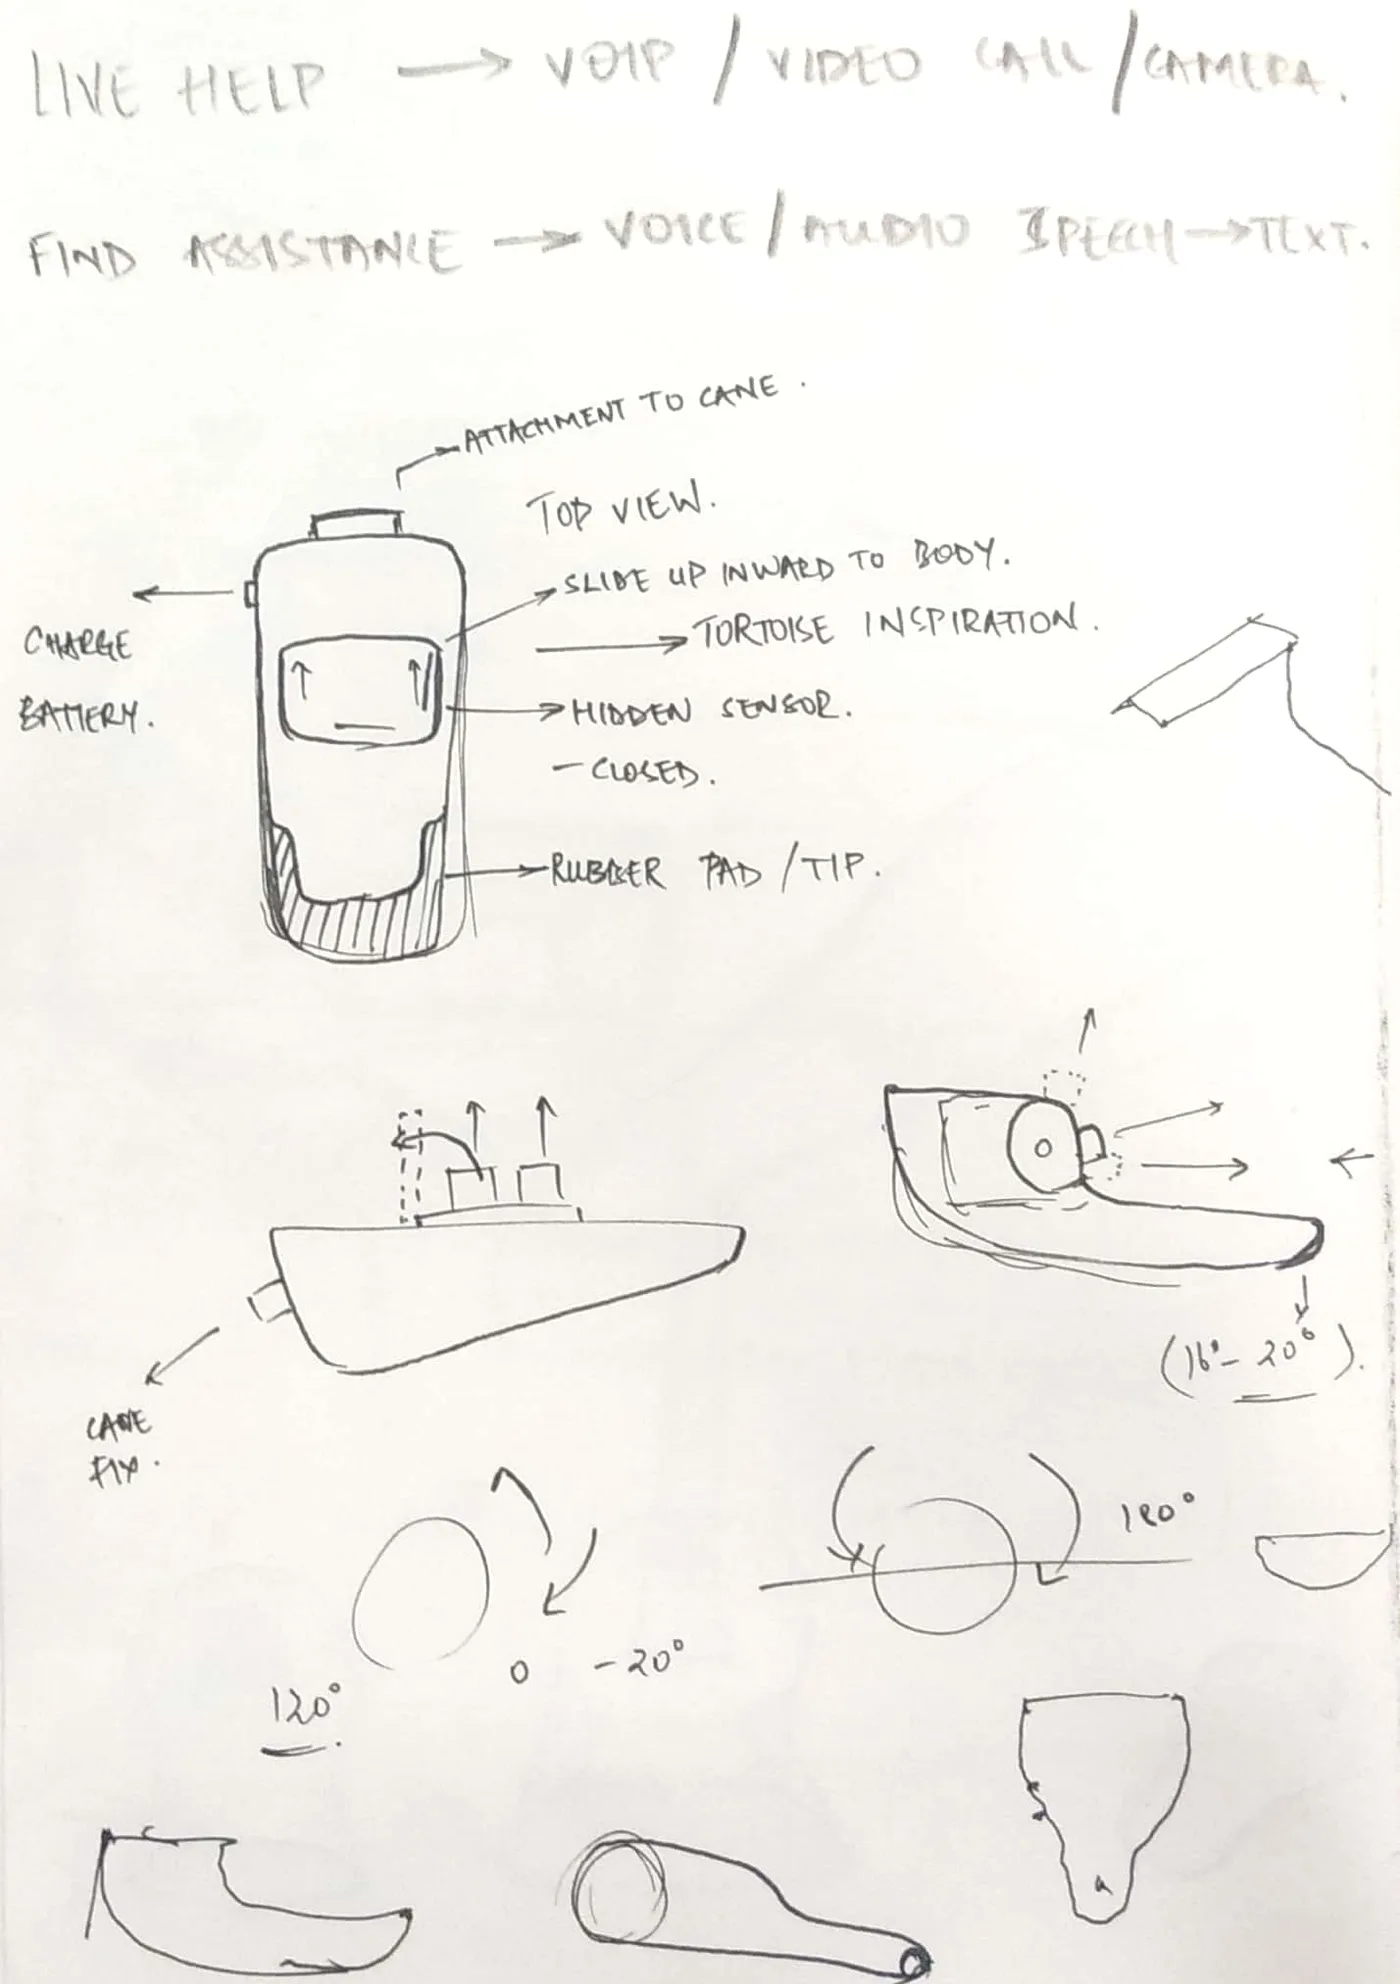 LIVE HELP → VOIP / VIDEO CALL / CAMERA.
FIND ASSISTANCE → VOICE / AUDIO SPEECH → TEXT.
ATTACHMENT TO CANE.
TOP VIEW.
SLIDE UP INWARD TO BODY.
TORTOISE INSPIRATION.
CHARGE
BATTERY.
HIDDEN SENSOR.
- CLOSED.
RUBBER PAD / TIP.
(16°- 20°).
CANE
FIX.
180°
0 -20°
120°